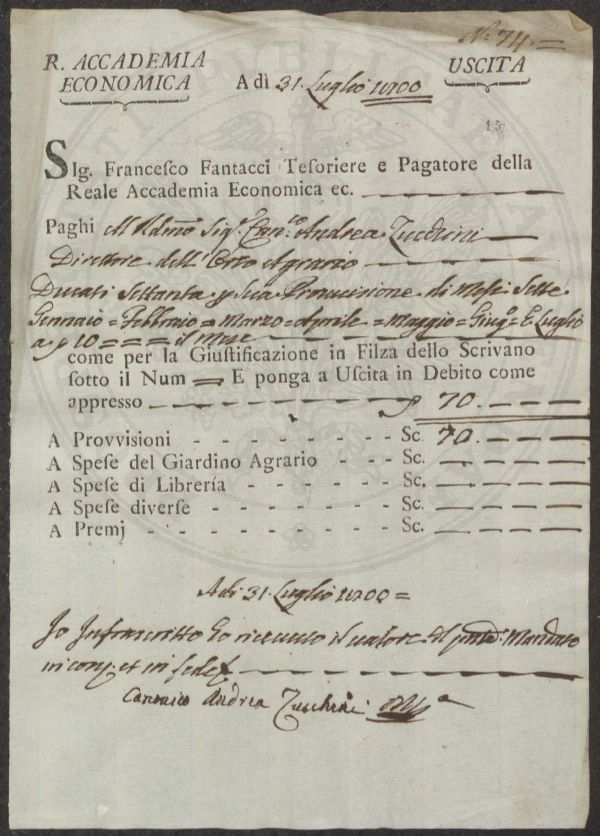 N: 74 =
R. ACCADEMIA
ECONOMICA
A dì 31. Luglio 1800
USCITA
15
SIg. Franceſco Fantacci Teſoriere e Pagatore della
Reale Accademia Economica ec.
Paghi Al Rdmo Sig.r Can.co Andrea Zucchini
Direttore dell' Orto Agrario
Ducati Settanta p Sua Provvisione di Mesi Sette
Gennaio = Febbraio = Marzo = Aprile = Maggio = Giug.o = E Luglio
a 10 = = = il Mese
come per la Giuſtificazione in Filza dello Scrivano
ſotto il Num = E ponga a Uſcita in Debito come
appreſſo 70. — —
A Provviſioni - - - - - - - - Sc. 70. — —
A Speſe del Giardino Agrario - - - - Sc. — — —
A Speſe di Librería - - - - - - - Sc. — — —
A Speſe diverſe - - - - - - - - Sc. — — —
A Premj - - - - - - - - - Sc. — — —
A di 31. Luglio 1800 =
Io Infrascritto ho ricevuto il valore del Mandato
et in fede
Canonico Andrea Zucchini